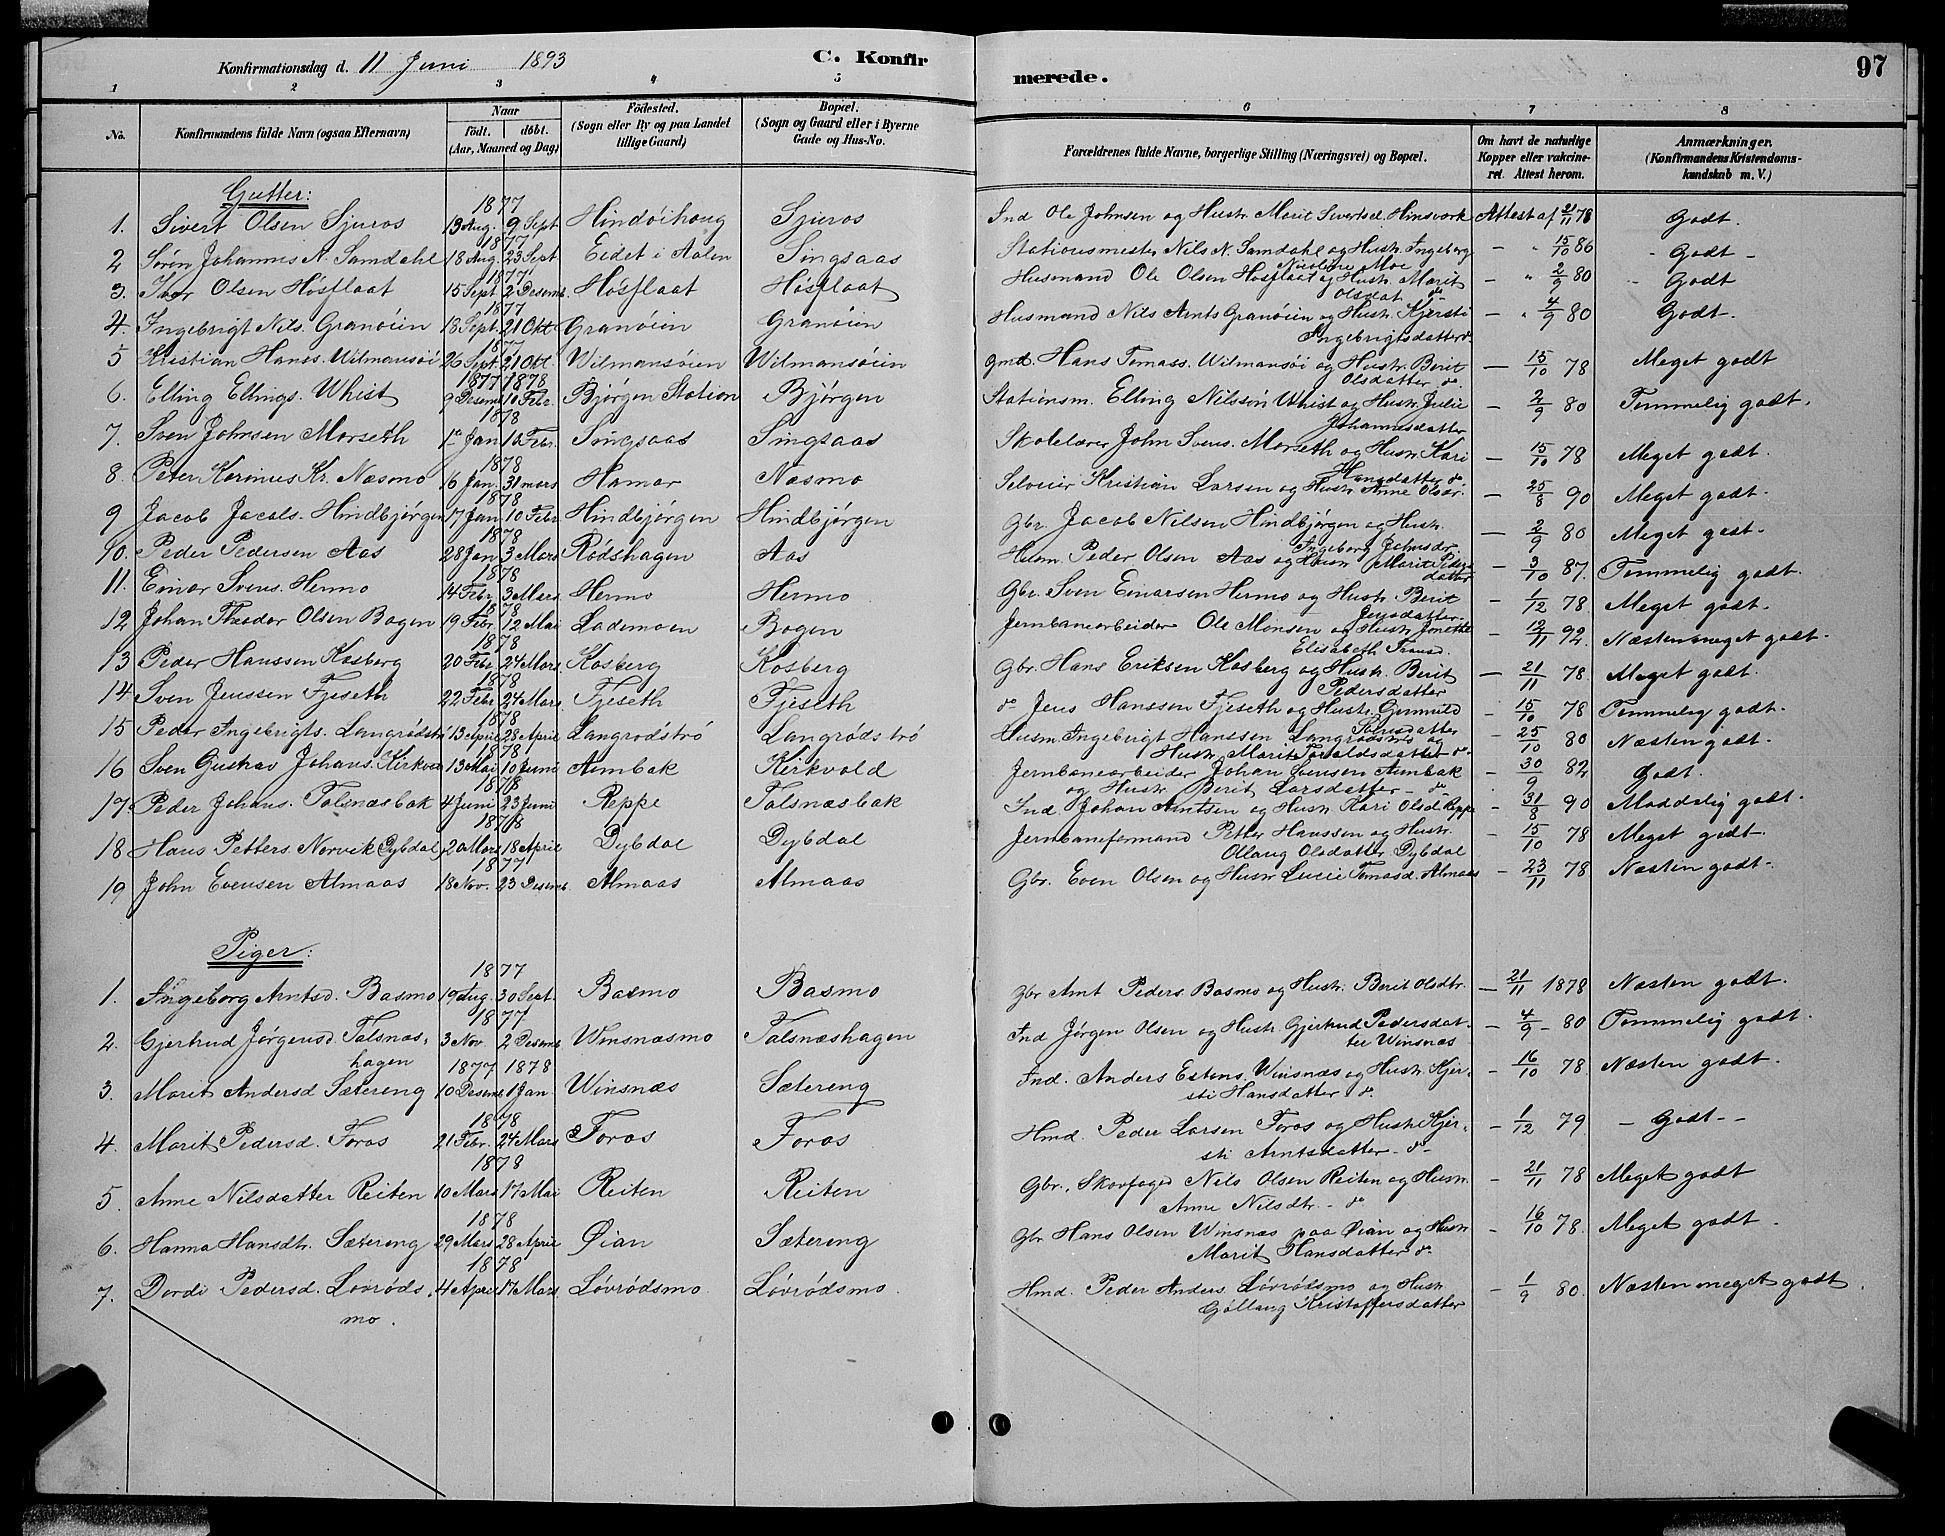 Konfirmationsdag d. 11 Juni 1893 C. Konfir
merede. 97
1 2 3 4 5 6 7 8
No. Konfirmandens fulde Navn (ogsaa Efternavn) Naar födt. döbt. (Aar, Maaned og Dag) Födested. (Sogn eller By og paa Landet tillige Gaard) Bopæl. (Sogn og Gaard eller i Byerne Gade og Hus-No. Forældrenes fulde Navne, borgerlige Stilling (Næringsvei) og Bopæl. Om havt de naturlige Kopper eller vakcineret. Attest herom. Anmærkninger. (Konfirmandens Kristendomskundskab m. V.)
Gutter:
1877
1. Sivert Olsen Sjuros 13 Aug. 9 Sept Hindöihoug Sjuros Ind Ole Johnsen og Hustr. Marit Sivertsd. Hinsverk Attest af 21/11 78 Godt.
1877
2 Sören Johannes N. Samdahl 18 Aug. 23 Sept Eidet i Aalen Singsaas Stationsmester Nils N. Samdahl og Hustr. Ingeborg — " 15/10 86 - Godt -
Nicoline Moe
1877
3. Iver Olsen Hösflaat 15 Sept. 2 Desemb. Hösflaat Hösflaat Husmand Ole Olsen Hösflaat og Hustr. Marit — " 2/9 80 - Godt
Olsdat do
1877
4. Ingebrigt Nils. Granöien 18 Sept. 21 Okt. Granöien Granöien Husmand Nils Arnts Granöien og Hustr. Kjersti — " 4/9 80 Godt.
Ingebrigtsdatter do.
1877
5 Kristian Hanss. Wilmansöi 26 Sept. 21 Okt. Wilmansöien Wilmansöien Gmd. Hans Tomass. Wilmansöi og Hustr. Berit — 15/10 78 Meget godt
Olsdatter do.
1877 1878
6. Elling Ellings. Whist 9 Desemb 10 Febr. Bjørgen Station Bjørgen Stationsm. Elling Nilssön Whist og Hustr. Julie — 2/9 80 Temmelig godt.
Johannesdatter
1878
7. Sven Johnsen Morseth 1 Jan 16 Febr. Singsaas Singsaas Skolelærer John Svens. Morseth og Hustr. Kari — 15/10 78 Meget godt.
Hansdatter do.
1878
8. Peter Karinius Kr. Næsmo 16 Jan. 31 mars Hamar Næsmo Selveier Kristian Larsen og Hustr. Anne Olsdr. — 25/8 90 Meget godt.
1878
9 Jacob Jacobs. Hindbjørgen 17 Jan 10 Febr Hindbjørgen Hindbjørgen Gbr. Jacob Nilsen Hindbjørgen og Hustr. — 2/9 80 Meget godt.
Ingeborg Johnsdr.
1878
10. Peder Pedersen Aas 28 Jan 3 Mars Rödshagen Aas Husm. Peder Olsen Aas og Hustr Marit Peders — 3/10 87. Temmelig godt.
datter
1878
11. Einar Svens. Hermo 14 Febr. 3 Mars. Hermo Hermo Gbr. Sven Einarsen Hermo og Hustr. Berit — 1/12 78 Meget godt.
Jensdatter.
1878
12 Johan Theodor Olsen Bogen 19 Febr. 12 Mai Lademoen Bogen Jernbanearbeider Ole Monsen og Hustr. Jonette — 12/11 92. Næsten meget godt.
Elisabeth Transd.
1878
13 Peder Hanssen Kosberg 20 Febr. 24 Mars. Kosberg Kosberg Gbr. Hans Eriksen Kosberg og Hustr. Berit — 21/11 78 Meget godt.
Pedersdatter
1878
14 Sven Jenssen Fjeseth 22 Febr 24 Mars. Fjeseth Fjeseth do Jens Hanssen Fjeseth og Hustr. Gunnild — 15/10 78 Temmelig godt.
1878
15 Peder Ingebrigts. Langrödströ 13 April 28 April Langrödströ Langrödströ Husm Ingebrigt Hanssen Langrödströ og — 25/10 80 Næsten godt.
Hustr. Marit datter do.
1878
16 Sven Gustav Johans. Kirkvold 13 Mai 10 Juni Aunbak Kirkvold Jernbanearbeider Johan Svensen Aunbak — 30/9 82 Godt.
og Hustr. Berit Larsdatter — do
1878
17. Peder Johans. Talsnæsbak 4 Juni 23 Juni Reppe Talsnæsbak Ind. Johan Arntsen og Hustr. Kari Olsd. Reppe — 31/8 90 Maadelig godt.
1878
18 Hans Petters. Norvik Dybdal 20 Mars 18 April Dybdal Dybdal Jernbaneformand Petter Hanssen og Hustr. — 15/10 78 Meget godt.
Ollaug Olsdatter Dybdal
1877
19 John Evensen Almaas 18 Nov. 23 Desemb. Almaas Almaas Gbr. Even Olsen og Hustr Lucie Tomasd. Almaas — 23/11 78 Næsten godt.
Piger:
1877
1. Ingeborg Arntsd. Basmo 19 Aug. 30 Sept. Basmo Basmo Gbr Arnt Peders. Basmo og Hustr. Berit Olsdtr. — 21/11 1878 Næsten godt.
1877
2. Gjertrud Jørgensd. Talsnæs- 3 Nov. 2 Desemb Winsnæsmo Talsnæshagen Ind Jørgen Olsen og Hustr Gjertrud Pedersdat- — 4/9 - 80 Temmelig godt.
hagen ter Winsnæs
1877 1878
3. Marit Andersd Sætereng 10 Desemb 1 Jan Winsnæs Sætereng Ind. Anders Estens. Winsnæs og Hustr. Kjer- — 16/10 78 Næsten godt.
sti Hansdatter do.
1878
4. Marit Pedersd. Foros 21 Febr. 24 Mars Foros Foros Hmd. Peder Larsen Foros og Hustr Kjer- — 1/12 79 - Godt - -
sti Arntsdatter - do -
1878
5. Anne Nilsdatter Reiten 10 Mars 17 Mai Reiten Reiten Gbr., Skovfoged Nils Olsen Reiten og Hustr. — 21/11 78 Meget godt
Anne Nilsdtr. - do
1878
6. Hanna Hansdtr. Sætereng 29 Mars 28 April Øian Sætereng Gbr. Hans Olsen Winsnæs paa Øian og Hustr — 16/10 78. Meget godt.
Marit Hansdatter do
1878
7. Dordi Pedersd. Lövröds- 4 April 17 Mars Lövrödsmo Lövrödsmo. Hmd. Peder Anders. Lövrödsmo og Hustr — 1/9 80. Næsten meget godt.
mo. Göllaug Kristoffersdatter